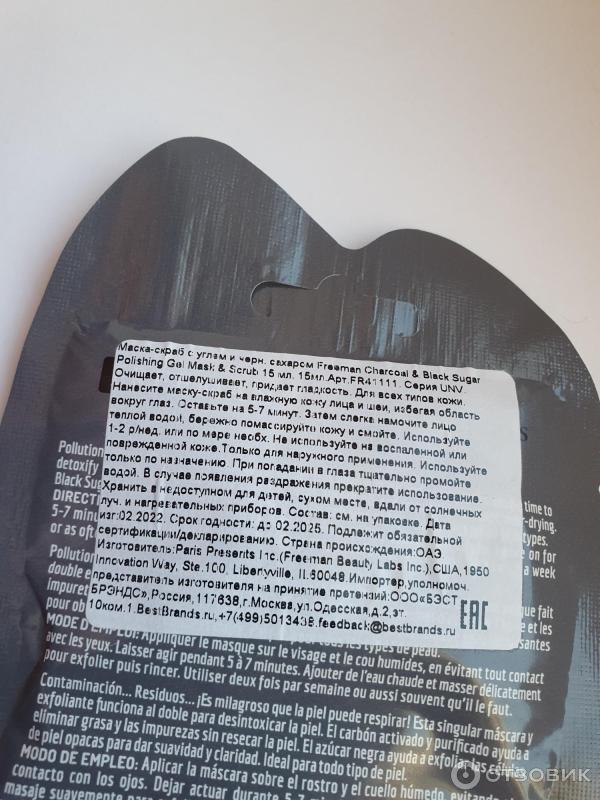 Маска-скраб с углем и черн. сахаром Freeman Charcoal & Black Sugar
Polishing Gel Mask & Scrub 15 мл. 15мл.Арт.FR41111. Серия UNV.
Очищает, отшелушивает, придает гладкость. Для всех типов кожи.
Нанесите маску-скраб на влажную кожу лица и шеи, избегая область
вокруг глаз. Оставьте на 5-7 минут. Затем слегка намочите лицо
теплой водой, бережно помассируйте кожу и смойте. Используйте
1-2 р/нед. или по мере необх. Не используйте на воспаленной или
поврежденной коже.Только для наружного применения. Используйте
только по назначению. При попадании в глаза тщательно промойте
водой. В случае появления раздражения прекратите использование.
Хранить в недоступном для детей, сухом месте, вдали от солнечных
луч. и нагревательных приборов. Состав: см. на упаковке. Дата
изг:02.2022. Срок годности: до 02.2025. Подлежит обязательной
сертификации/декларированию. Страна происхождения:ОАЭ.
Изготовитель:Paris Presents Inc.(Freeman Beauty Labs Inc.),США,1950
Innovation Way, Ste.100, Libertyville, IL60048.Импортер,уполномоч.
представитель изготовителя на принятие претензий:ООО«БЭСТ
БРЭНДС»,Россия,117638,г.Москва,ул.Одесская,д.2,эт.
10ком.1.BestBrands.ru,+7(499)5013438.feedback@bestbrands.ru
EAC
Pollution
detoxify
Black Sug
DIRECT
5-7 minu
or as oft
time to
-drying.
types.
on for
a week
Pollution
double e
impuret
pour ob
que fait
et les
santes
tous les types de peau.
MODE D'EMPLOI: Appliquer le masque sur le visage et le cou humides, en évitant tout contact
avec les yeux. Laisser agir pendant 5 à 7 minutes. Ajouter de l'eau chaude et masser délicatement
pour exfolier puis rincer. Utiliser deux fois par semaine ou aussi souvent qu'il le faut.
Contaminación... Residuos... ¡Es milagroso que la piel puede respirar! Esta singular máscara y
exfoliante funciona al doble para desintoxicar la piel. El carbón activado y purificado ayuda a
eliminar grasa y las impurezas sin resecar la piel. El azúcar negra ayuda a exfoliar las células
de piel opacas para dar suavidad y claridad. Ideal para todo tipo de piel.
MODO DE EMPLEO: Aplicar la máscara sobre el rostro y el cuello húmedo, evitando
contacto con los ojos. Dejar actuar durante 5-7 min
masaje suavemente para
ОТЗОВИК